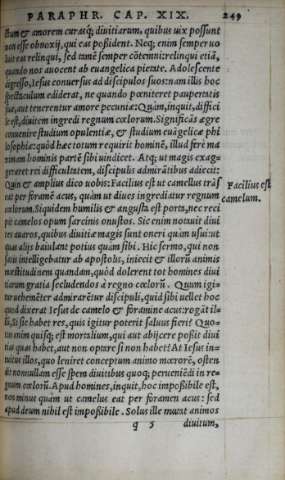 PARAPHR. CAP. XIX. 249
stum & amorem curasq; diuitiarum, quibus uix possunt
non esse obnoxij, qui eas possident. Neq; enim semper uo
luit eas relinqui, sed tamẽ semper cõtemni: relinqui etiã,
quando nos auocent ab euangelica pietate. Adolescente
digresso, Iesus conuersus ad discipulos suos: nam illis hoc
spectaculum ediderat, ne quando pœniteret paupertatis
suæ, aut tenerentur amore pecuniæ: Quàm, inquit, diffici
le est, diuitem ingredi regnum cœlorum. Significãs ægre
conuenire studium opulentiæ, & studium euãgelicæ phi
losophiæ: quòd hæc totum requirit hominẽ, illud ferè ma
ximam hominis partẽ sibi uindicet. Atq; ut magis exag-
geraret rei difficultatem, discipulis admirãtibus adiecit:
Quin & amplius dico uobis: Facilius est ut camellus trãs
eat per foramẽ acus, quàm ut diues ingrediatur regnum
cœlorum. Siquidem humilis & angusta est porta, nec reci
pit camelos opum sarcinis onustos. Sic enim notauit diui
tes auaros, quibus diuitiæ magis sunt oneri quàm usui: ut
quas alijs baiulant potius quàm sibi. Hic sermo, qui non
satis intelligebatur ab apostolis, iniecit & illorũ animis
mœstitudinem quandam, quòd dolerent tot homines diui
tiarum gratia secludendos à regno cœlorũ. Quum igi-
tur uehemẽter admirarẽtur discipuli, quid sibi uellet hoc
quod dixerat Iesus de camelo & foramine acus: rogãt il-
lũ, si sic habet res, quis igitur poterit saluus fieri? Quo-
tus enim quisq; est mortalium, qui aut abijcere possit diui
tias quas habet, aut non optare si non habet? At Iesus in-
tuitus illos, quo leniret conceptum animo mœrorẽ, osten
dit nonnullam esse spem diuitibus quoq; perueniẽdi in re-
gnum cœlorũ. Apud homines, inquit, hoc impoßibile est,
nos minus quàm ut camelus eat per foramen acus: sed
apud deum nihil est impoßibile. Solus ille mutat animos
q 5 diuitum,
Facilius est
camelum.